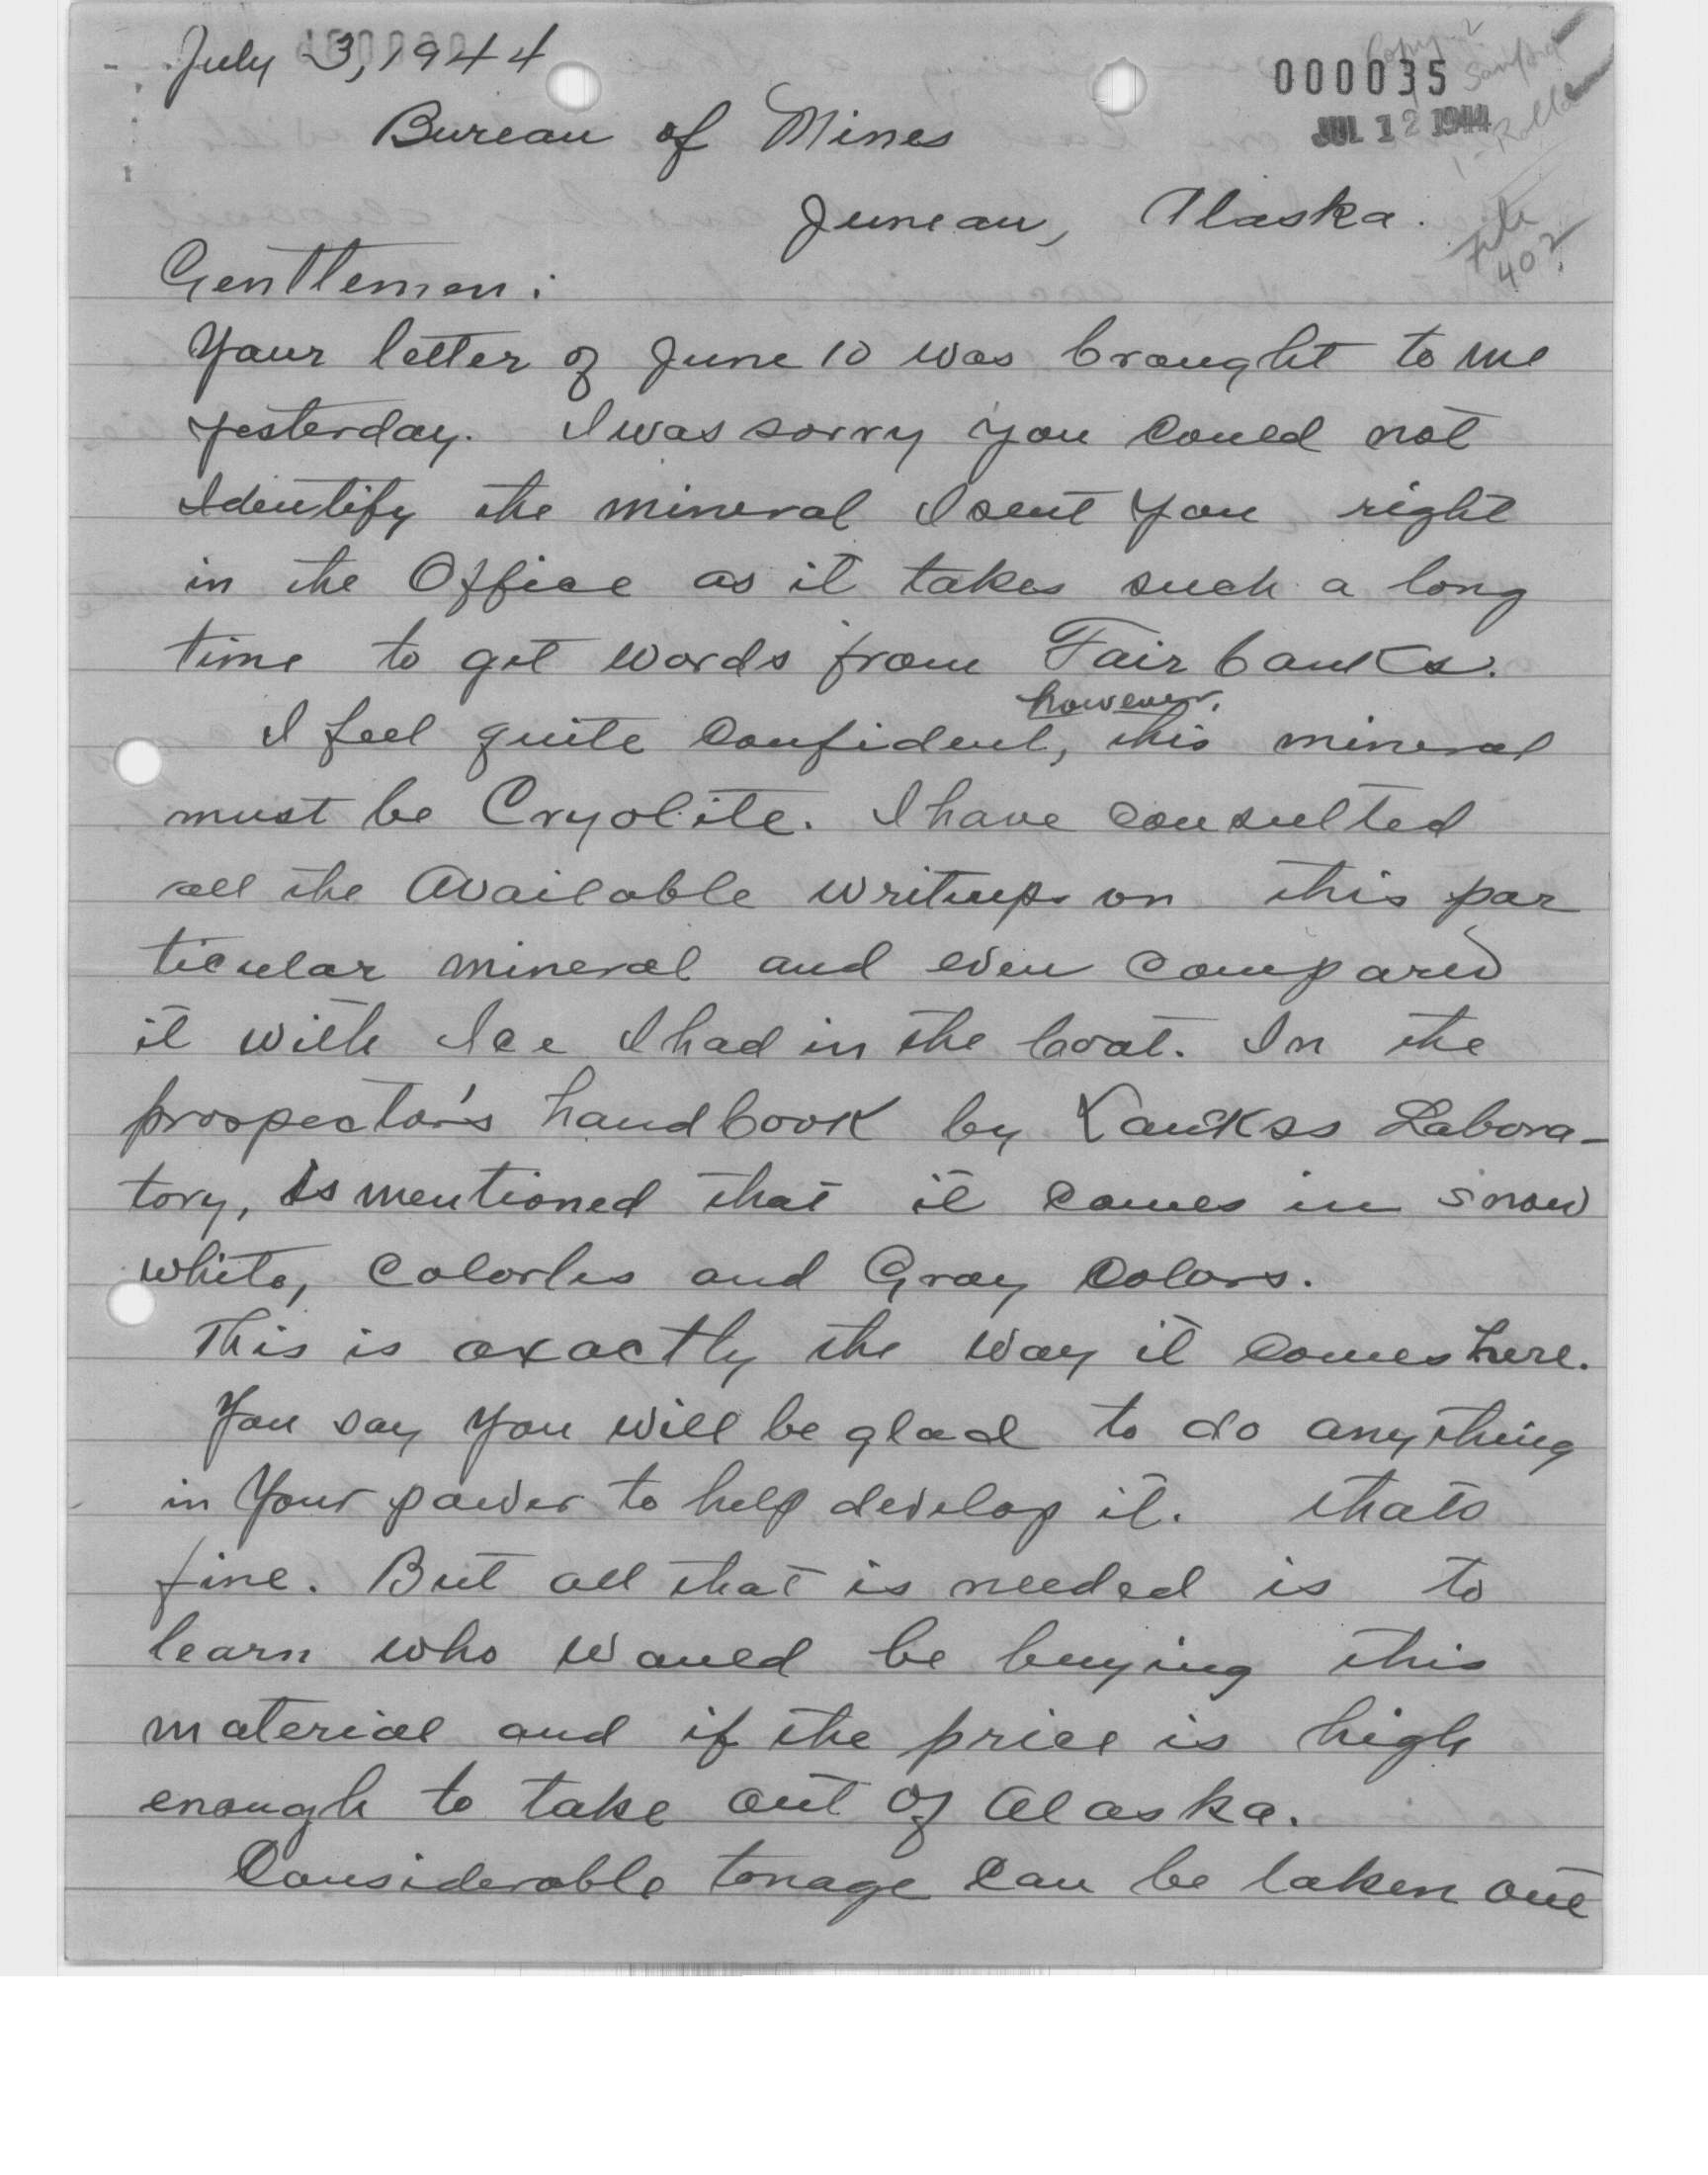 July 3, 1944
000035
JUL 12 1944
Copy-2
1-Rolla
Bureau of Mines
Juneau, Alaska.
File
402
Gentlemen:
Your letter of June 10 was brought to me
yesterday. I was sorry you could not
Identify the mineral I sent you right
in the Office as it takes such a long
time to get words from Fairbanks.
however,
I feel quite confident, this mineral
must be Cryolite. I have consulted
all the Available writeups on this par
ticular mineral and even compared
it with Ice I had in the boat. In the
prospector's handbook by Labora-
tory, Is mentioned that it comes in snow
white, colorles and Gray Colors.
This is exactly the way it comes here.
You say you will be glad to do anything
in Your power to help develop it. thats
fine. But all that is needed is to
learn who would be buying this
material and if the price is high
enough to take out of Alaska.
Considerable tonage can be taken out